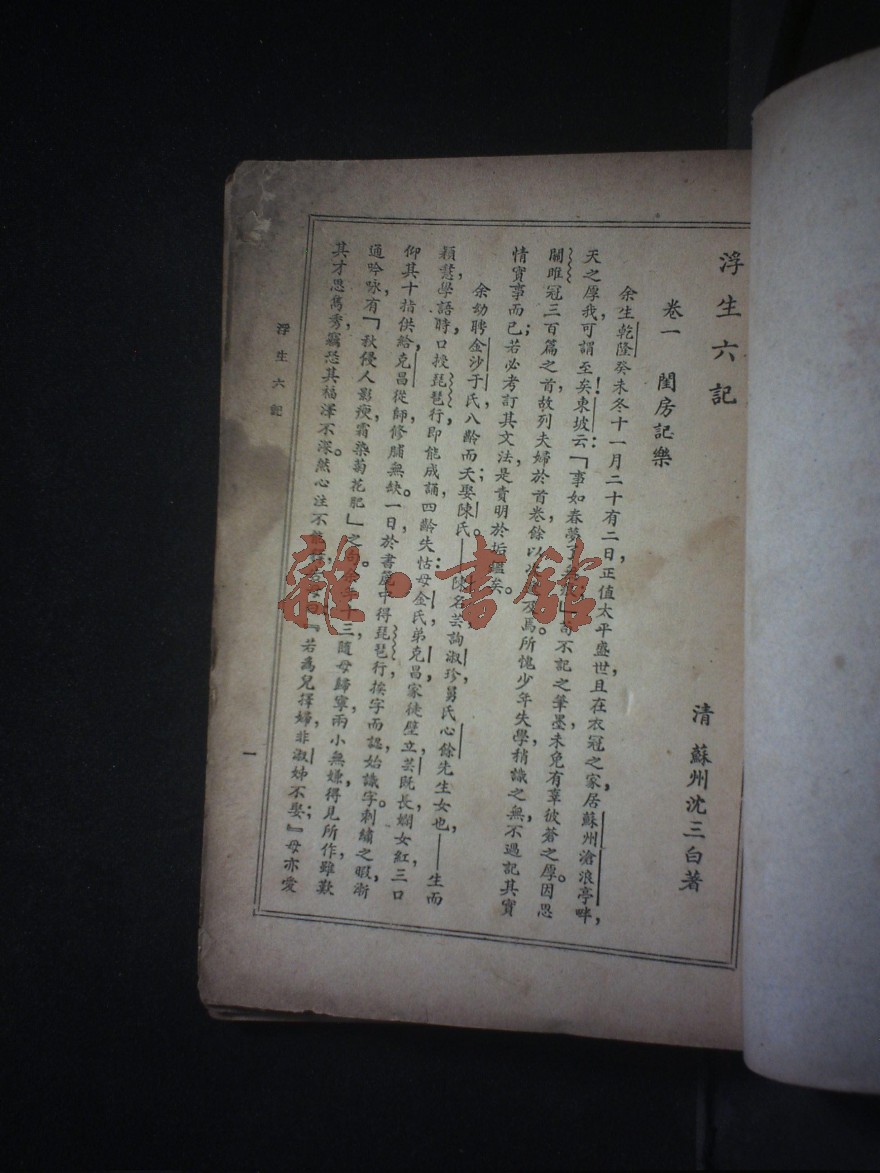 浮生六記
卷一　閨房記樂
清　蘇州沈三白著
余生乾隆癸未冬十一月二十有二日，正值太平盛世，且在衣冠之家，居蘇州滄浪亭畔，
天之厚我，可謂至矣！東坡云：「事如春夢了無痕」苟不記之筆墨，未免有辜彼蒼之厚。因思
關雎冠三百篇之首，故列夫婦於首卷，餘以次遞及焉。所愧少年失學，稍識之無，不過記其實
情實事而已；若必考訂其文法，是責明於垢鑑矣。
余幼聘金沙于氏，八齡而夭；娶陳氏。——陳名芸，詢淑珍，舅氏心餘先生女也，——生而
穎慧，學語時，口授琵琶行，即能成誦。四齡失怙；母金氏，弟克昌，家徒壁立。芸既長，嫻女紅，三口
仰其十指供給，克昌從師，修脯無缺。一日，於書簏中得琵琶行，挨字而認，始識字。刺繡之暇，漸
通吟咏，有「秋侵人影瘦，霜染菊花肥」之句。 十三，隨母歸寧，兩小無嫌，得見所作，雖歎
其才思雋秀，竊恐其福澤不深。然心注不能 『若爲兒擇婦，非淑姊不娶；』母亦愛
浮生六記
一
雜·書館